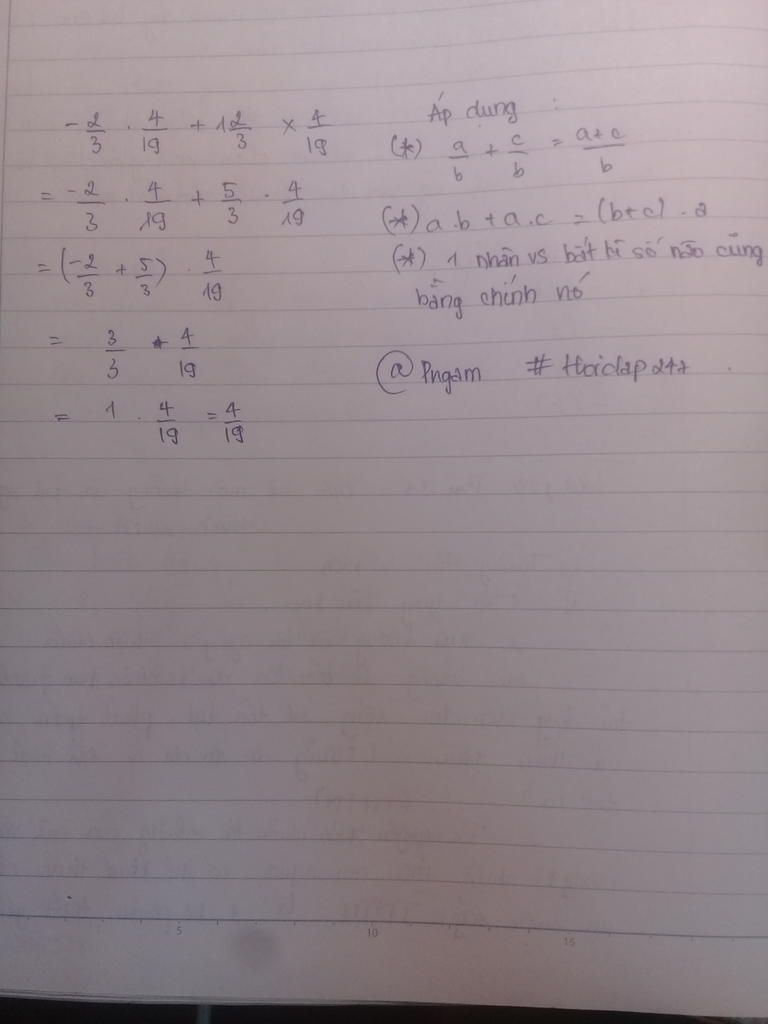 -2/3 . 4/19 + 1 2/3 × 4/19
= -2/3 . 4/19 + 5/3 . 4/19
= (-2/3 + 5/3) . 4/19
= 3/3 * 4/19
= 1 . 4/19 = 4/19
Áp dung :
(*) a/b + c/b = a+c/b
(*) a.b + a.c = (b+c) . a
(*) 1 nhân vs bất kì số nào cũng
bằng chính nó
@ Pngam # Hoidap247 .
5 10 15